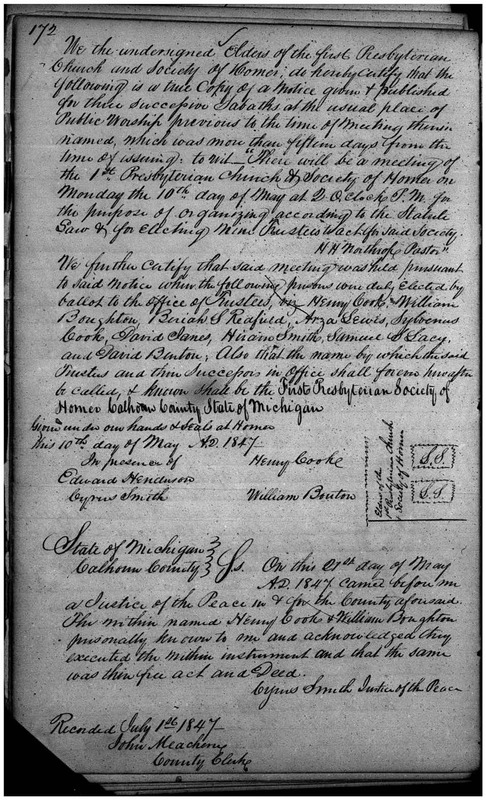 172
We the undersigned Elders of the first Presbyterian
Church and Society of Homer; do hereby Certify that the
following is a true Copy of a Notice given & published
for three successive Sabaths at the usual place of
Public Worship previous to the time of Meeting therein
named, which was more than fifteen days from the
time of issuing: to wit— "There will be a meeting of
the 1st Presbyterian Church & Society of Homer on
Monday the 10th day of May at 2 O,Clock P.M. for
the purpose of organizing according to the Statute
Law & for electing Nine Trustees to act for said Society.
H. H. Northrop Pastor"
We further Certify that said meeting was held pursuant
to said Notice when the following persons were duly elected by
ballot to the office of Trustees, viz Henry Cook, William
Boughton, Beriah S Redfield, Arza Lewis, Sylvenus
Cook, David Janes, Hiram Smith, Samuel S. Lacy,
and David Benton; Also that the name by which the said
Trustees and their Successors in Office shall forever hereafter
be called, & known shall be the First Presbyterian Society of
Homer Calhoun County State of Michigan
Given under our hands & Seals at Homer
This 10th day of May A.D. 1847
In presence of Henry Cooke
Edward Henderson
Cyrus Smith William Bouton
Elders of the
1st Presbyterian Church
& Society of Homer
S.S.
S.S.
State of Michigan }
Calhoun County } Ss. On this 21st day of May
A.D. 1847 came before me
a Justice of the Peace in & for the County aforesaid
The within named Henry Cooke & William Boughton
personally known to me and acknowledged they
executed the within instrument and that the same
was their free act and Deed.
Cyrus Smith Justice of the Peace
Recorded July 1st 1847
John Meachem
County Clerk